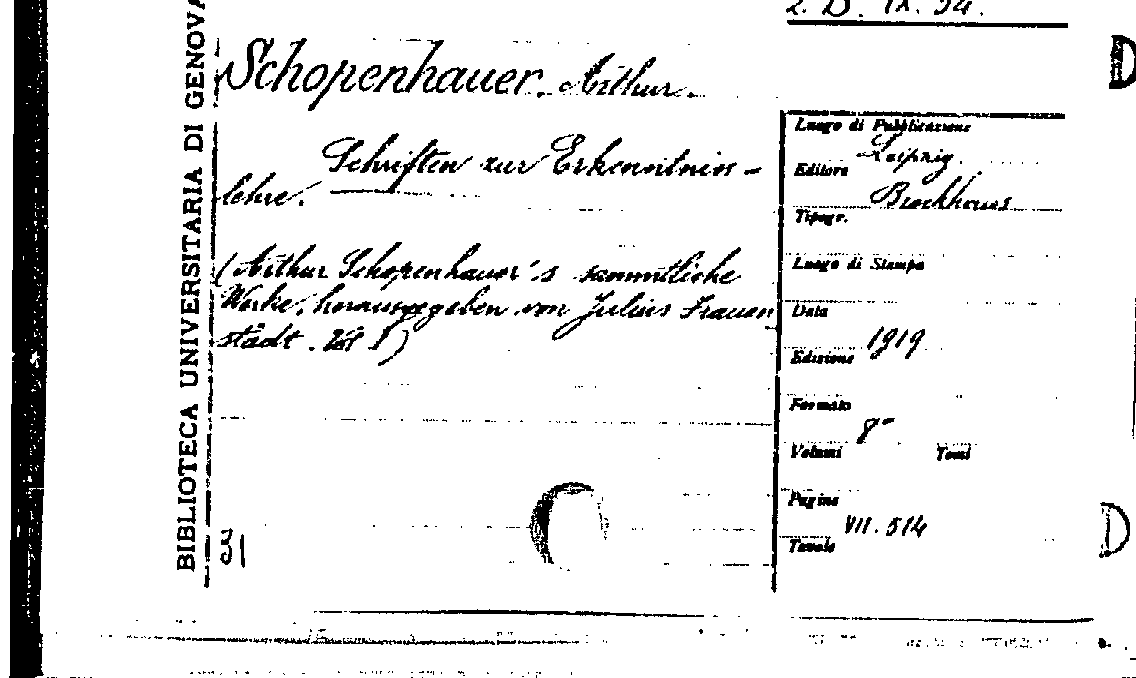 2. D. IX. 34.
BIBLIOTECA UNIVERSITARIA DI GENOVA
Schopenhauer. Arthur.
Schriften zur Erkenntnis-
lehre.
(Arthur Schopenhauer's sammtliche
Werke, herausgegeben von Julius Frauen
städt. Vol I)
31
Luogo di Pubblicazione
Leipzig.
Editore
Brockhaus
Tipogr.
Luogo di Stampa
Data
1919
Edizione
Formato
8°
Volumi Tomi
Pagine
VII. 514
Tavole